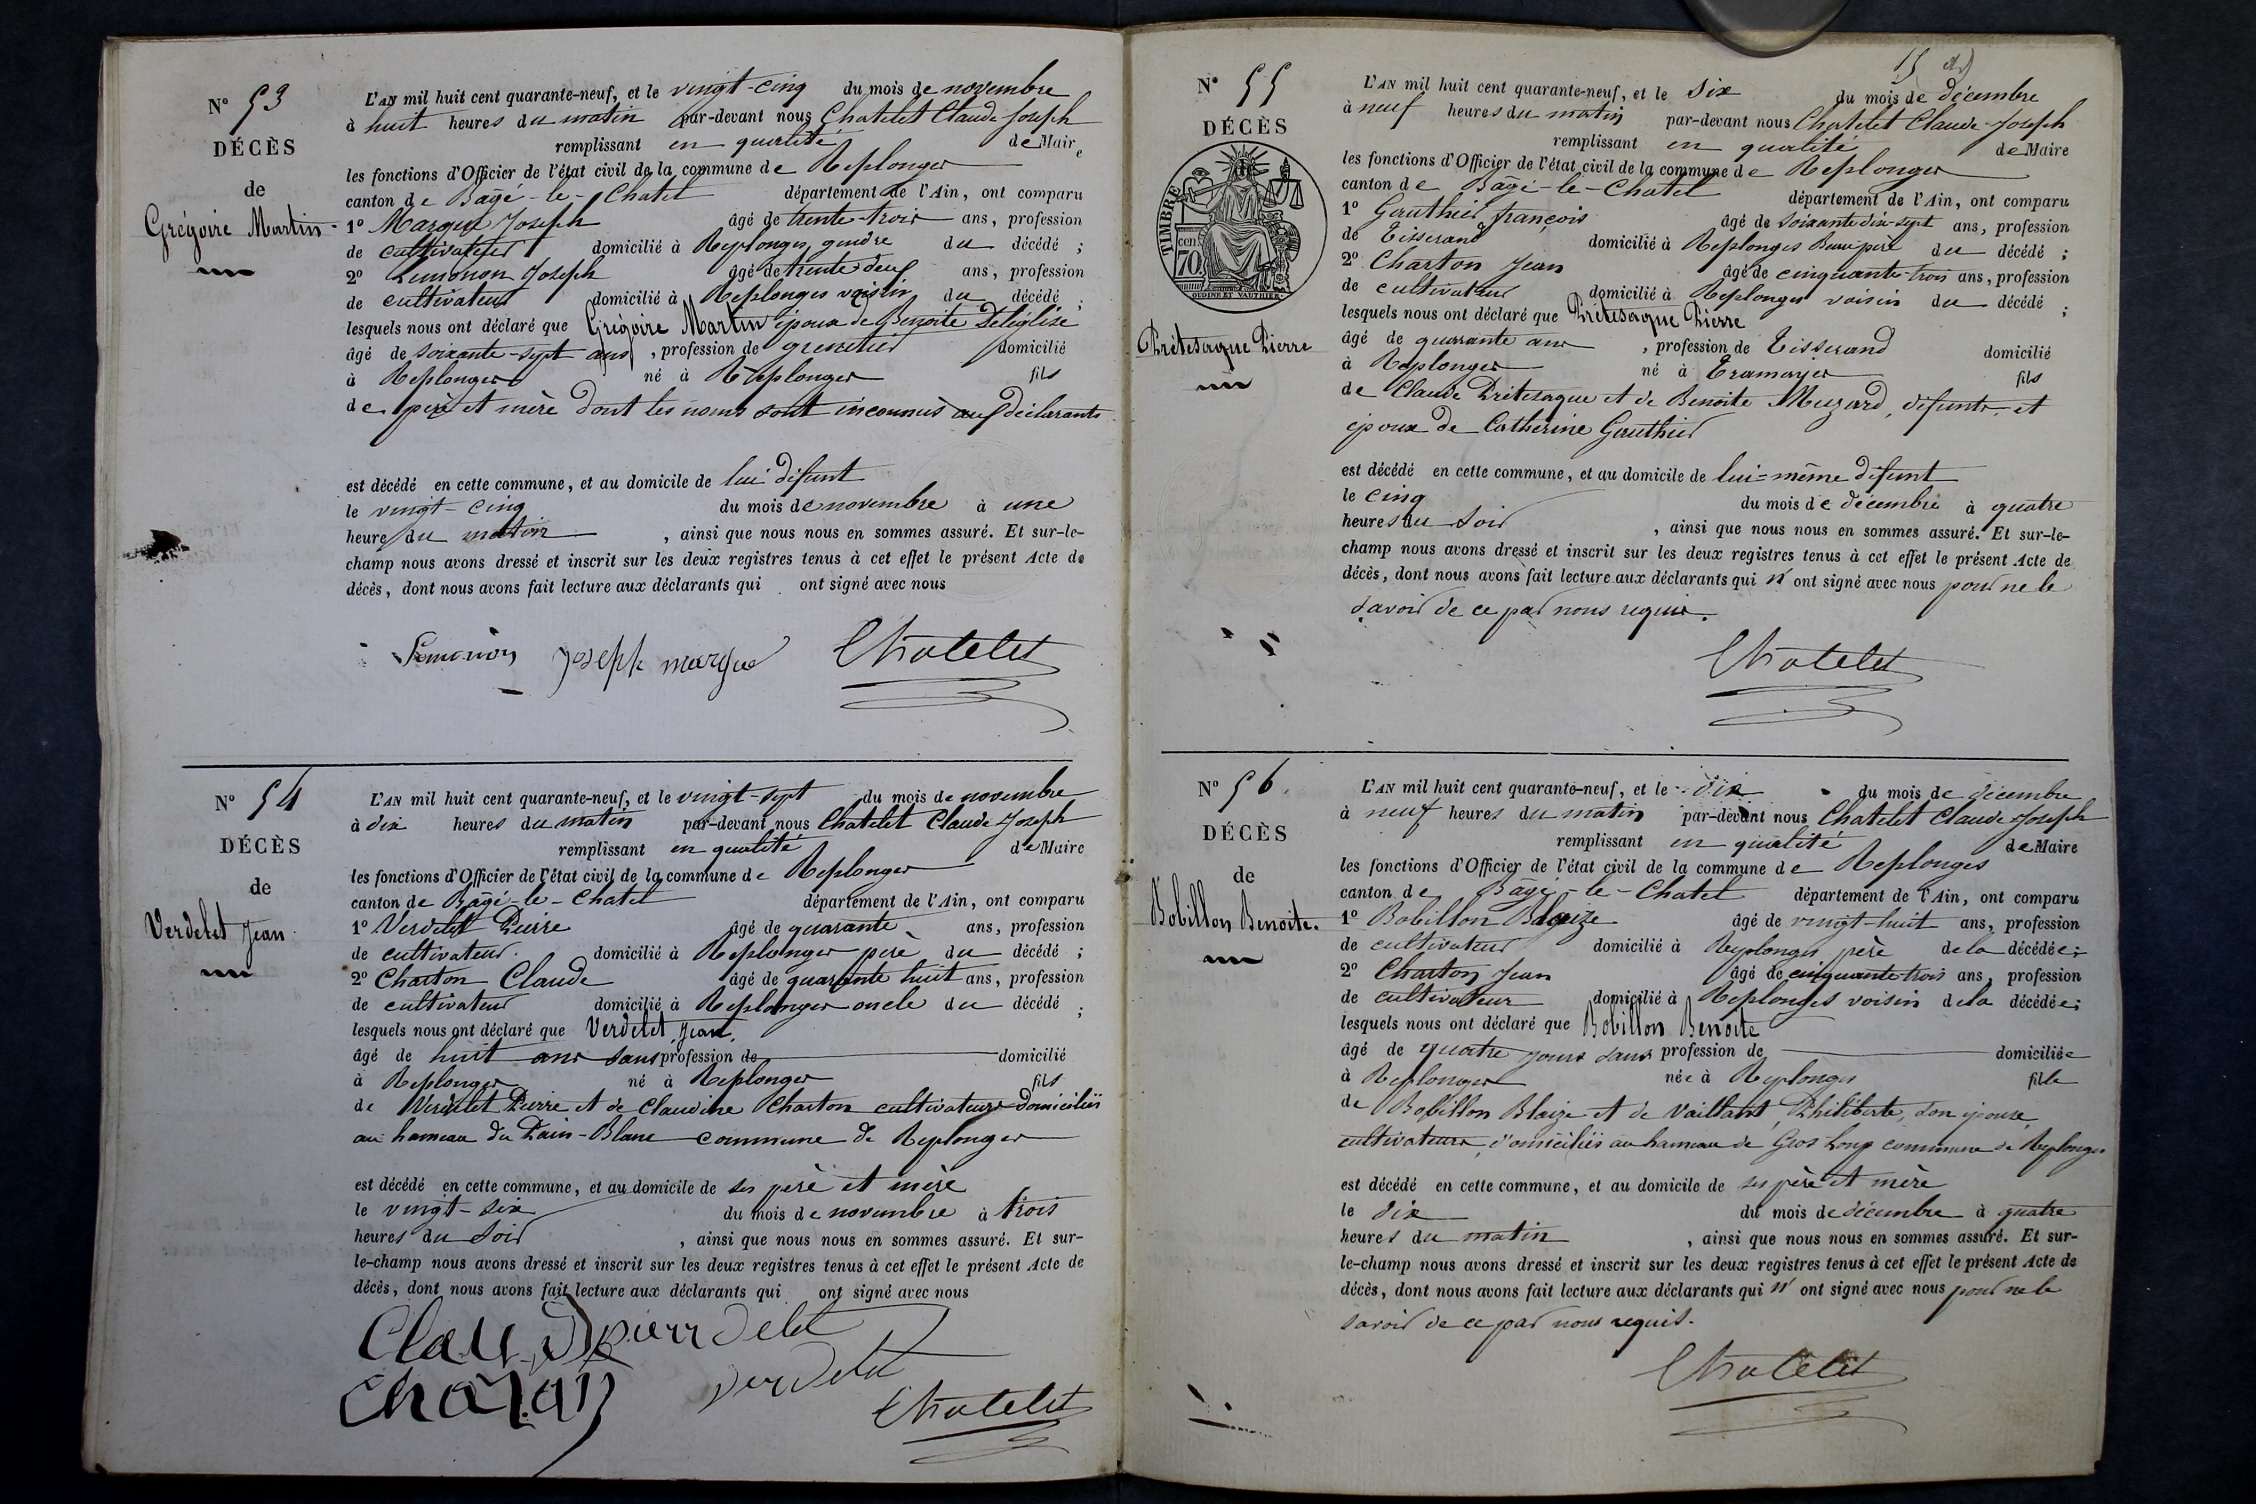 N° 53
DÉCÈS
de
Grégoire Martin
L'AN mil huit cent quarante-neuf, et le vingt-cinq du mois de novembre
à huit heures du matin par-devant nous Chatelet Claude Joseph
remplissant en qualité de Maire
les fonctions d'Officier de l'état civil de la commune de Replonges
canton de Bâgé-le-Chatel département de l'Ain, ont comparu
1° Margue Joseph âgé de trente-trois ans, profession
de cultivateur domicilié à Replonges, gendre du décédé ;
2° Lumonon Joseph âgé de trente deux ans, profession
de cultivateur domicilié à Replonges voisin du décédé ;
lesquels nous ont déclaré que Grégoire Martin époux de Benoite Deléglise
âgé de soixante-sept ans, profession de grenetier domicilié
à Replonges né à Replonges fils
de père et mère dont les noms sont inconnus aux déclarants
est décédé en cette commune, et au domicile de lui défunt
le vingt-cinq du mois de novembre à une
heure du matin, ainsi que nous nous en sommes assuré. Et sur-le-
champ nous avons dressé et inscrit sur les deux registres tenus à cet effet le présent Acte de
décès, dont nous avons fait lecture aux déclarants qui ont signé avec nous
joseph margue Chatelet
N° 54
DÉCÈS
de
Verdelet Jean
L'AN mil huit cent quarante-neuf, et le vingt-sept du mois de novembre
à dix heures du matin par-devant nous Chatelet Claude Joseph
remplissant en qualité de Maire
les fonctions d'Officier de l'état civil de la commune de Replonges
canton de Bâgé-le-Chatel département de l'Ain, ont comparu
1° Verdelet Pierre âgé de quarante ans, profession
de cultivateur domicilié à Replonges père du décédé ;
2° Charton Claude âgé de quarante huit ans, profession
de cultivateur domicilié à Replonges oncle du décédé ;
lesquels nous ont déclaré que Verdelet Jean,
âgé de huit ans sans profession de domicilié
à Replonges né à Replonges fils
de Verdelet Pierre et de Claudine Charton cultivateurs domiciliés
au hameau du Pain-Blanc commune de Replonges
est décédé en cette commune, et au domicile de ses père et mère
le vingt-six du mois de novembre à trois
heures du soir, ainsi que nous nous en sommes assuré. Et sur-
le-champ nous avons dressé et inscrit sur les deux registres tenus à cet effet le présent Acte de
décès, dont nous avons fait lecture aux déclarants qui ont signé avec nous
Chatelet
15
N° 55
DÉCÈS
TIMBRE
70 cen
OUDINÉ ET VAUTHIER
Prétesaque Pierre
L'AN mil huit cent quarante-neuf, et le six du mois de décembre
à neuf heures du matin par-devant nous Chatelet Claude-Joseph
remplissant en qualité de Maire
les fonctions d'Officier de l'état civil de la commune de Replonges
canton de Bâgé-le-Chatel département de l'Ain, ont comparu
1° Gauthier françois âgé de soixante dix-sept ans, profession
de Tisserand domicilié à Replonges Beau père du décédé ;
2° Charton Jean âgé de cinquante-trois ans, profession
de cultivateur domicilié à Replonges voisin du décédé ;
lesquels nous ont déclaré que Prétesaque Pierre
âgé de quarante ans, profession de Tisserand domicilié
à Replonges né à Tramayes fils
de Claude Prétesaque et de Benoite Muzard, défunts, et
époux de Catherine Gauthier
est décédé en cette commune, et au domicile de lui-même défunt
le cinq du mois de décembre à quatre
heures du soir, ainsi que nous nous en sommes assuré. Et sur-le-
champ nous avons dressé et inscrit sur les deux registres tenus à cet effet le présent Acte de
décès, dont nous avons fait lecture aux déclarants qui n'ont signé avec nous pour ne le
savoir de ce par nous requis.
Chatelet
N° 56.
DÉCÈS
de
Bobillon Benoite.
L'AN mil huit cent quarante-neuf, et le dix du mois de décembre
à neuf heures du matin par-devant nous Chatelet Claude Joseph
remplissant en qualité de Maire
les fonctions d'Officier de l'état civil de la commune de Replonges
canton de Bâgé-le-Chatel département de l'Ain, ont comparu
1° Bobillon Blaize âgé de vingt-huit ans, profession
de cultivateur domicilié à Replonges père de la décédée ;
2° Charton Jean âgé de cinquante-trois ans, profession
de cultivateur domicilié à Replonges voisin de la décédée ;
lesquels nous ont déclaré que Bobillon Benoite
âgé de quatre jours sans profession de domiciliée
à Replonges née à Replonges fille
de Bobillon Blaize et de Vaillant Philiberte, son épouse,
cultivateurs, domiciliés au hameau de Gros Loup commune de Replonges
est décédé en cette commune, et au domicile de ses père et mère
le dix du mois de décembre à quatre
heures du matin, ainsi que nous nous en sommes assuré. Et sur-
le-champ nous avons dressé et inscrit sur les deux registres tenus à cet effet le présent Acte de
décès, dont nous avons fait lecture aux déclarants qui n'ont signé avec nous pour ne le
savoir de ce par nous requis.
Chatelet